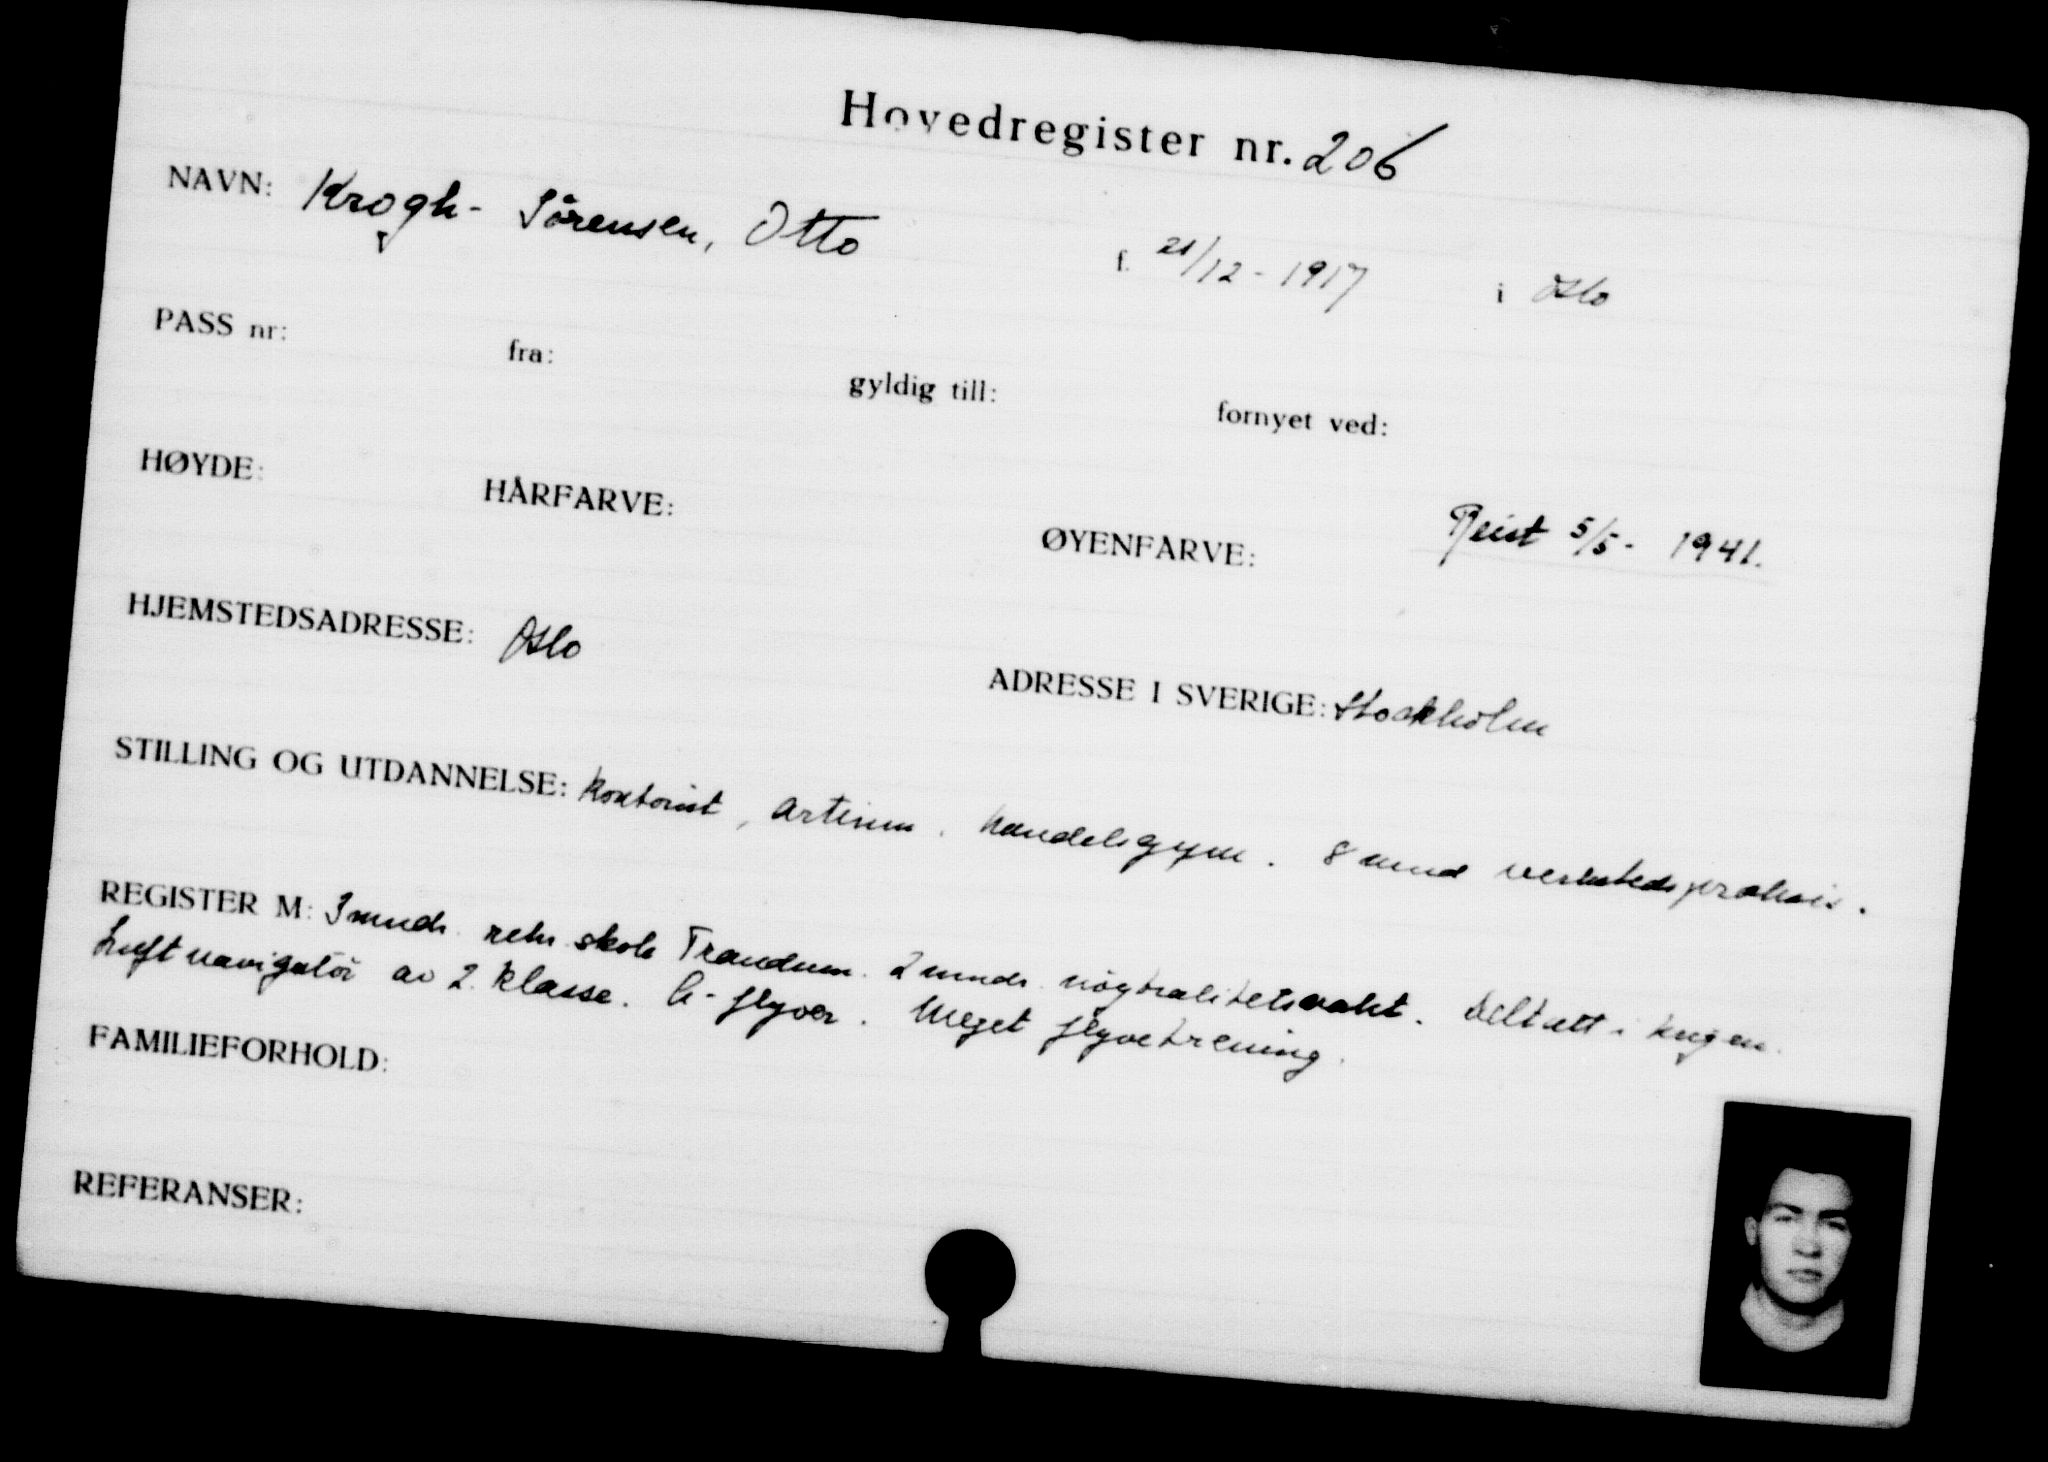 Hovedregister nr. 206
NAVN: Krogh-Sörensen, Otto f. 21/12 - 1917 i Oslo
PASS nr: fra: gyldig till: fornyet ved:
HØYDE: HÅRFARVE: ØYENFARVE: Reist 5/5 - 1941.
HJEMSTEDSADRESSE: Oslo ADRESSE I SVERIGE: Stockholm
STILLING OG UTDANNELSE: Kontorist, artium. handelsgym. 8 mnd verkstedspraksis.
REGISTER M: 3 mndr. rekr. skole Trandum. 2 mndr. nöytralitetsvakt. Deltatt i krigen.
Luftnavigatör av 2. klasse. A-flyver. Meget flyvetrening.
FAMILIEFORHOLD:
REFERANSER: